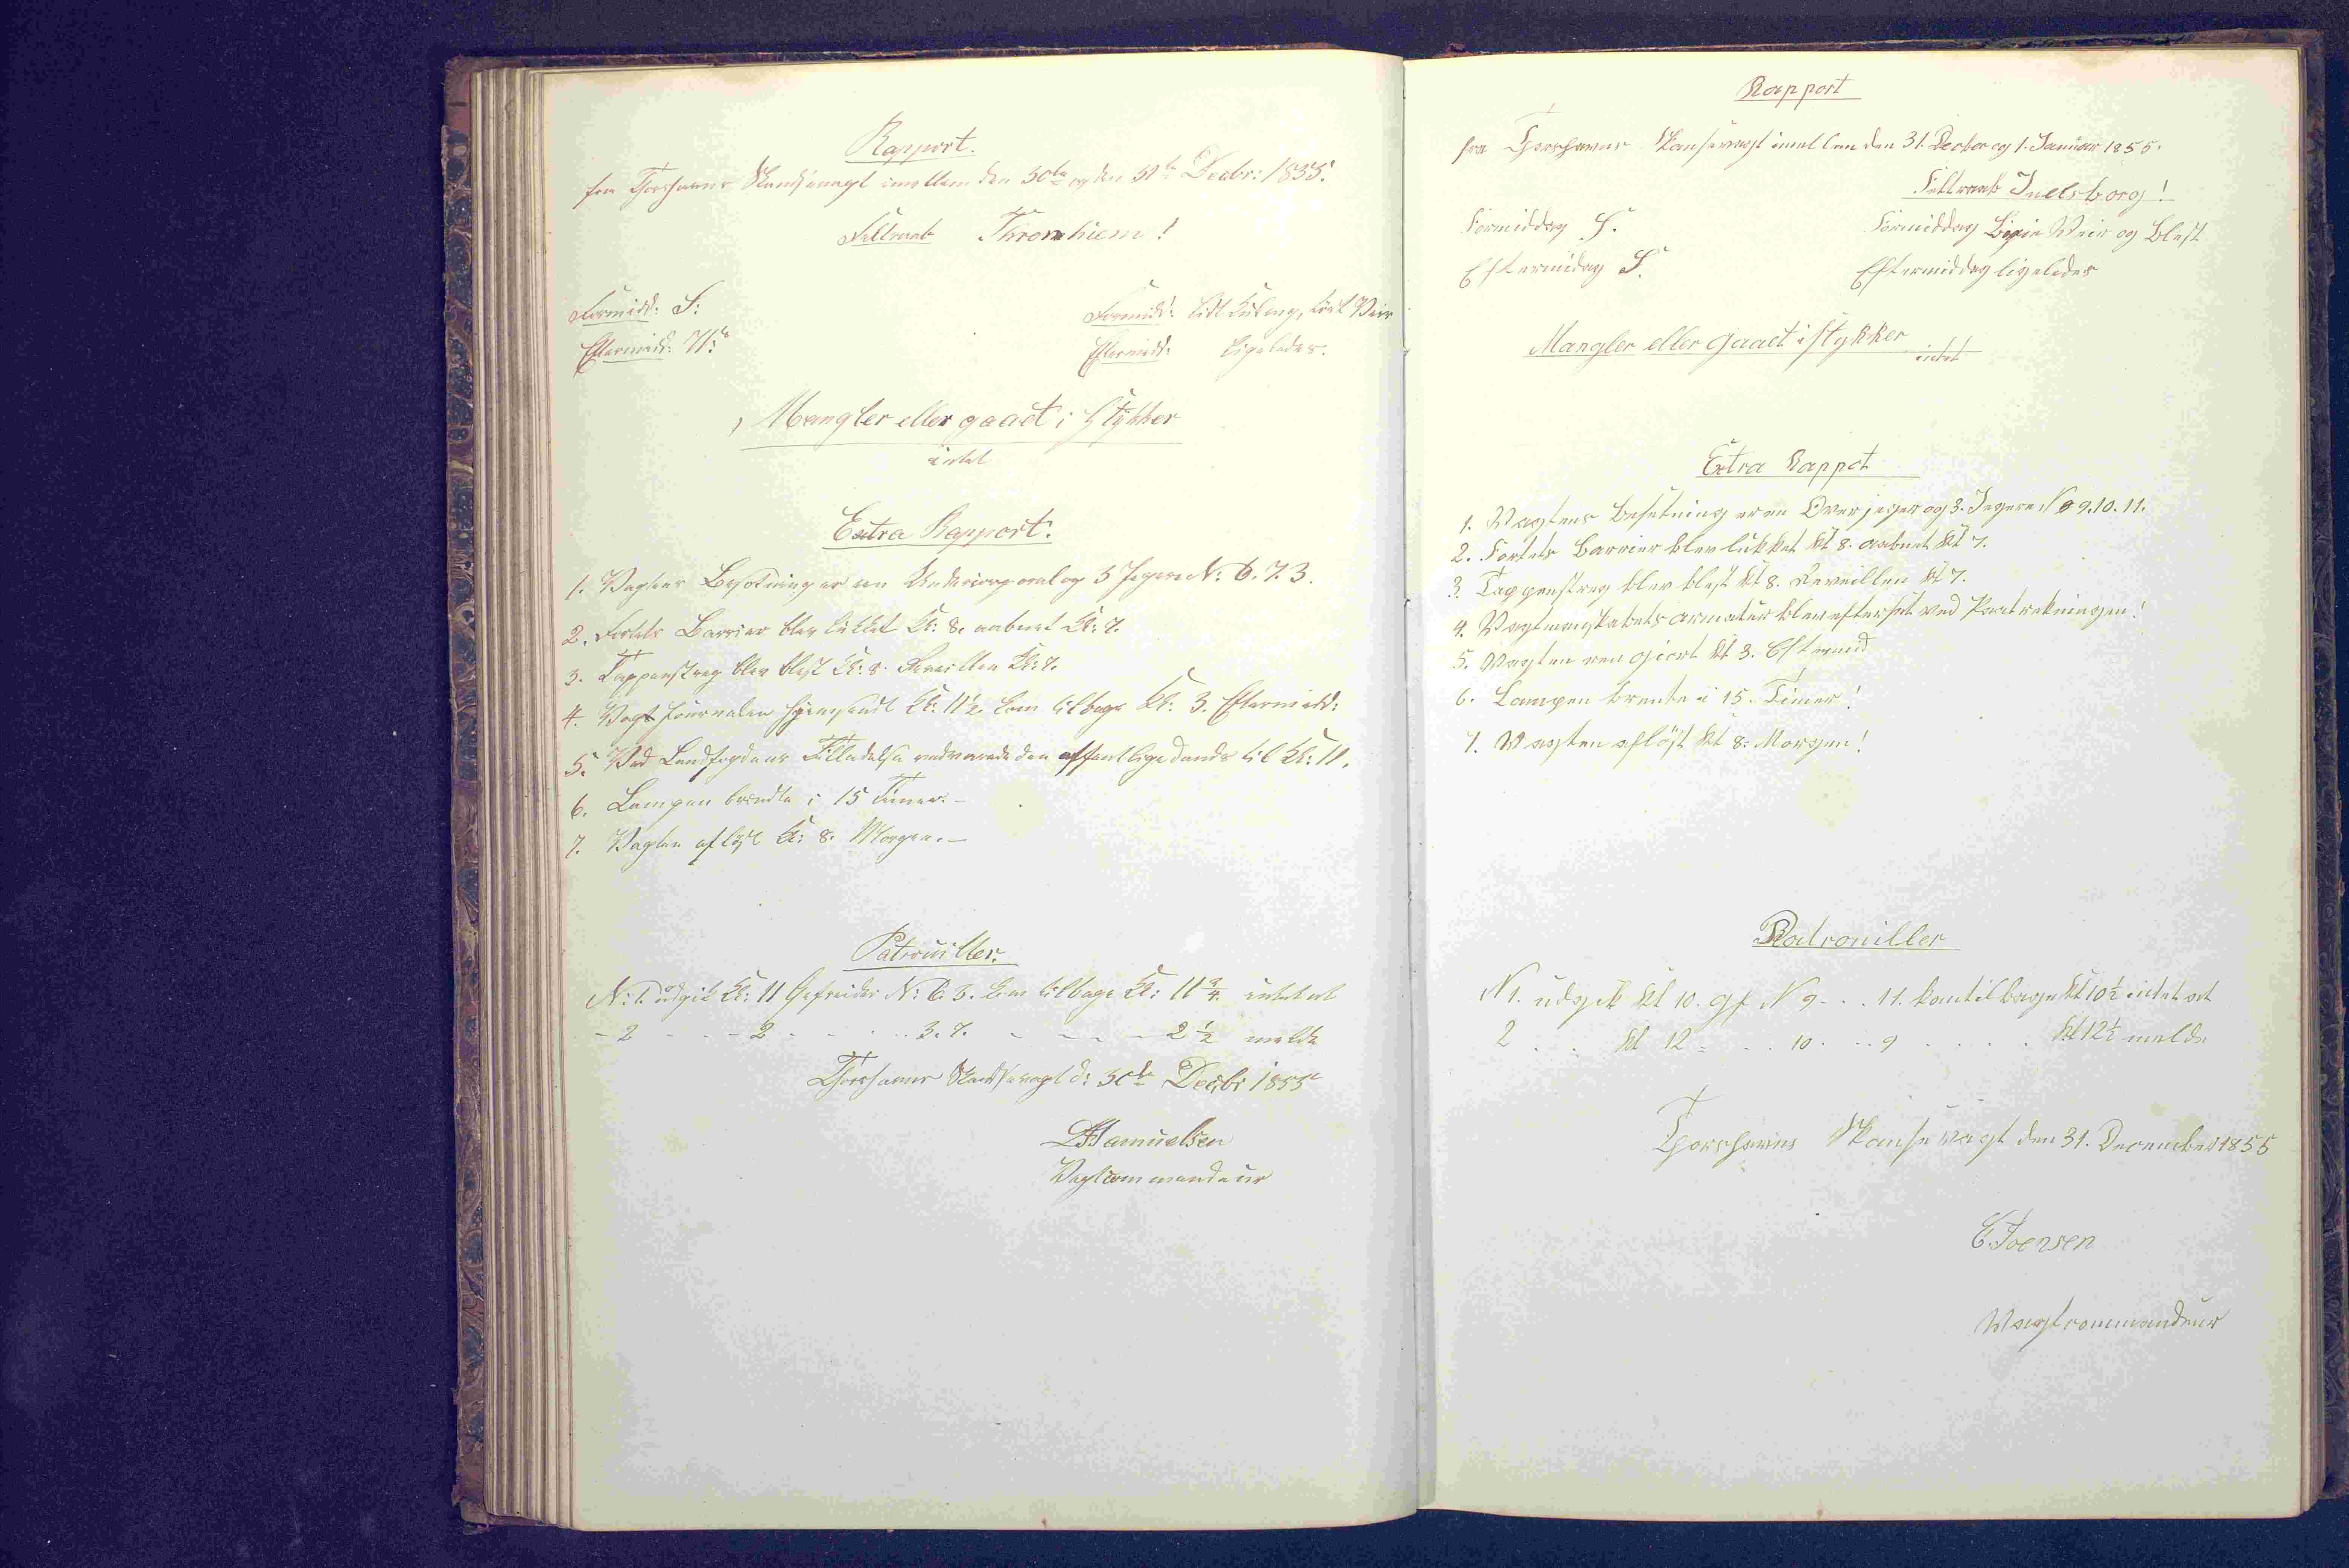 Rapport.
fra Thorshavns Skandsevagt imellem den 30te og den 31te Decbr: 1855.
Feltraab Thronhiem!
Formidd: S:
Formidd: lidt Kuling, Veir
Eftermidd:
Eftermidd: ligeledes.
Mangler eller gaaet i Stykker
intet
Extra Rapport.
1. Vagtens Besætning er en Undercorporal og 3 Jegere N: 6. 7. 3.
2. Fortets Barrier blev lukket Kl: 8. aabnet Kl: 7.
3. Tappenstreg blev blest Kl: 8. Reveillen Kl: 7.
4. Vagt Journalen Kl: 11½ kom tilbage Kl: 3. Eftermidd:
5. Ved Landfogdens Tilladelse vedvarede den offentlige Dands til Kl: 11.
6. Lampen brændte i 15 Timer.
7. Vagten aflöst Kl: 8. Morgen.
Patrouiller.
N: 1. udgik Kl: 11 Gefreider N: 6. 3. kom tilbage Kl: 11¾ intet at
- 2 - - - 2 - - - 3. 7. - - - - 2½ melde
Thorshavns Skandsevagt d: 30te Decbr 1855
Samuelsen
Vagtcommandeur
Rapport
fra Thorshavns Skansevagt imellem den 31. Decbr og 1. Januar 1855.
Feltraab Juelsborg!
Formiddag S.
Formiddag Veir og Blest
Eftermidag S.
Eftermiddag ligeledes
Mangler eller gaaet i stykker
intet
Extra Rappot
1. Vagtens besetning er en Overjeger og 3. Jegere N 9. 10. 11.
2. Fortets Barrier blev lukket Kl 8. aabnet Kl 7.
3. Tappenstreg blev blest Kl 8. Reveillen Kl 7.
4. Vagtmanskabets armatur blev efterset ved Paatrekningen!
5. Vagten ren gjort Kl 3. Eftermid
6. Lampen brente i 15. Timer!
7. Vagten aflöst Kl 8. Morgen!
Patrouiller
N 1. udgik Kl 10. gf N 9 - . . 11. kom tilbage Kl 10½ intet at
2 . . Kl 12 - . . 10 . . . 9 . . . . Kl 12½ melde
Thorshavns Skansevagt den 31. December 1855
Joensen
Vagtcommandeur